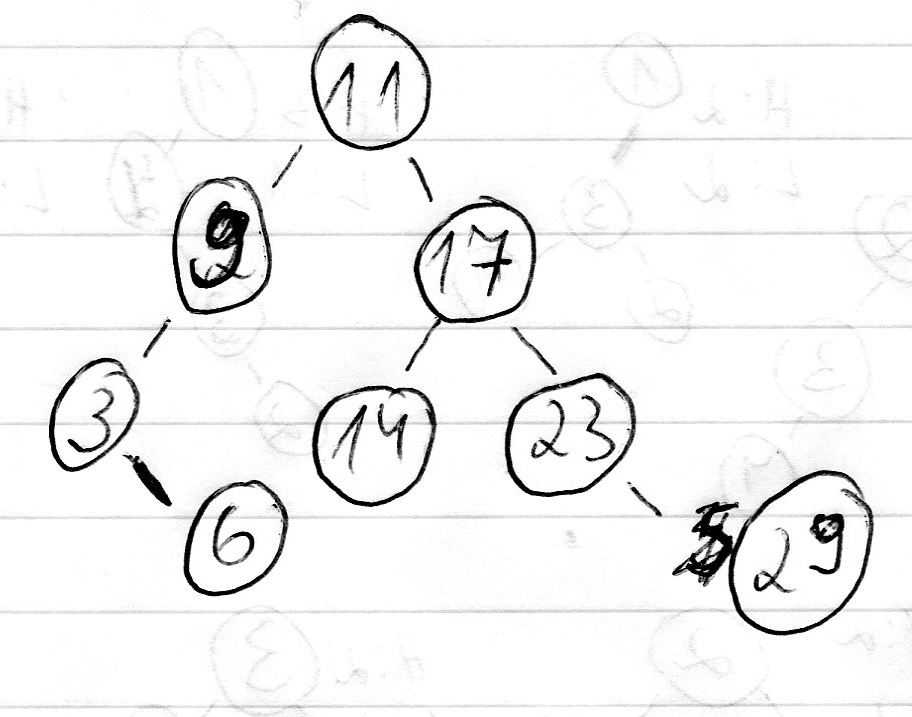 11
9 17
3 14 23
6 29